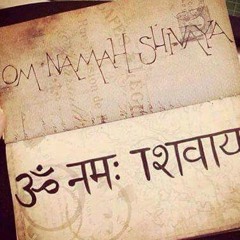 OM NAMAH SHIVAYA
ॐ नमः शिवाय